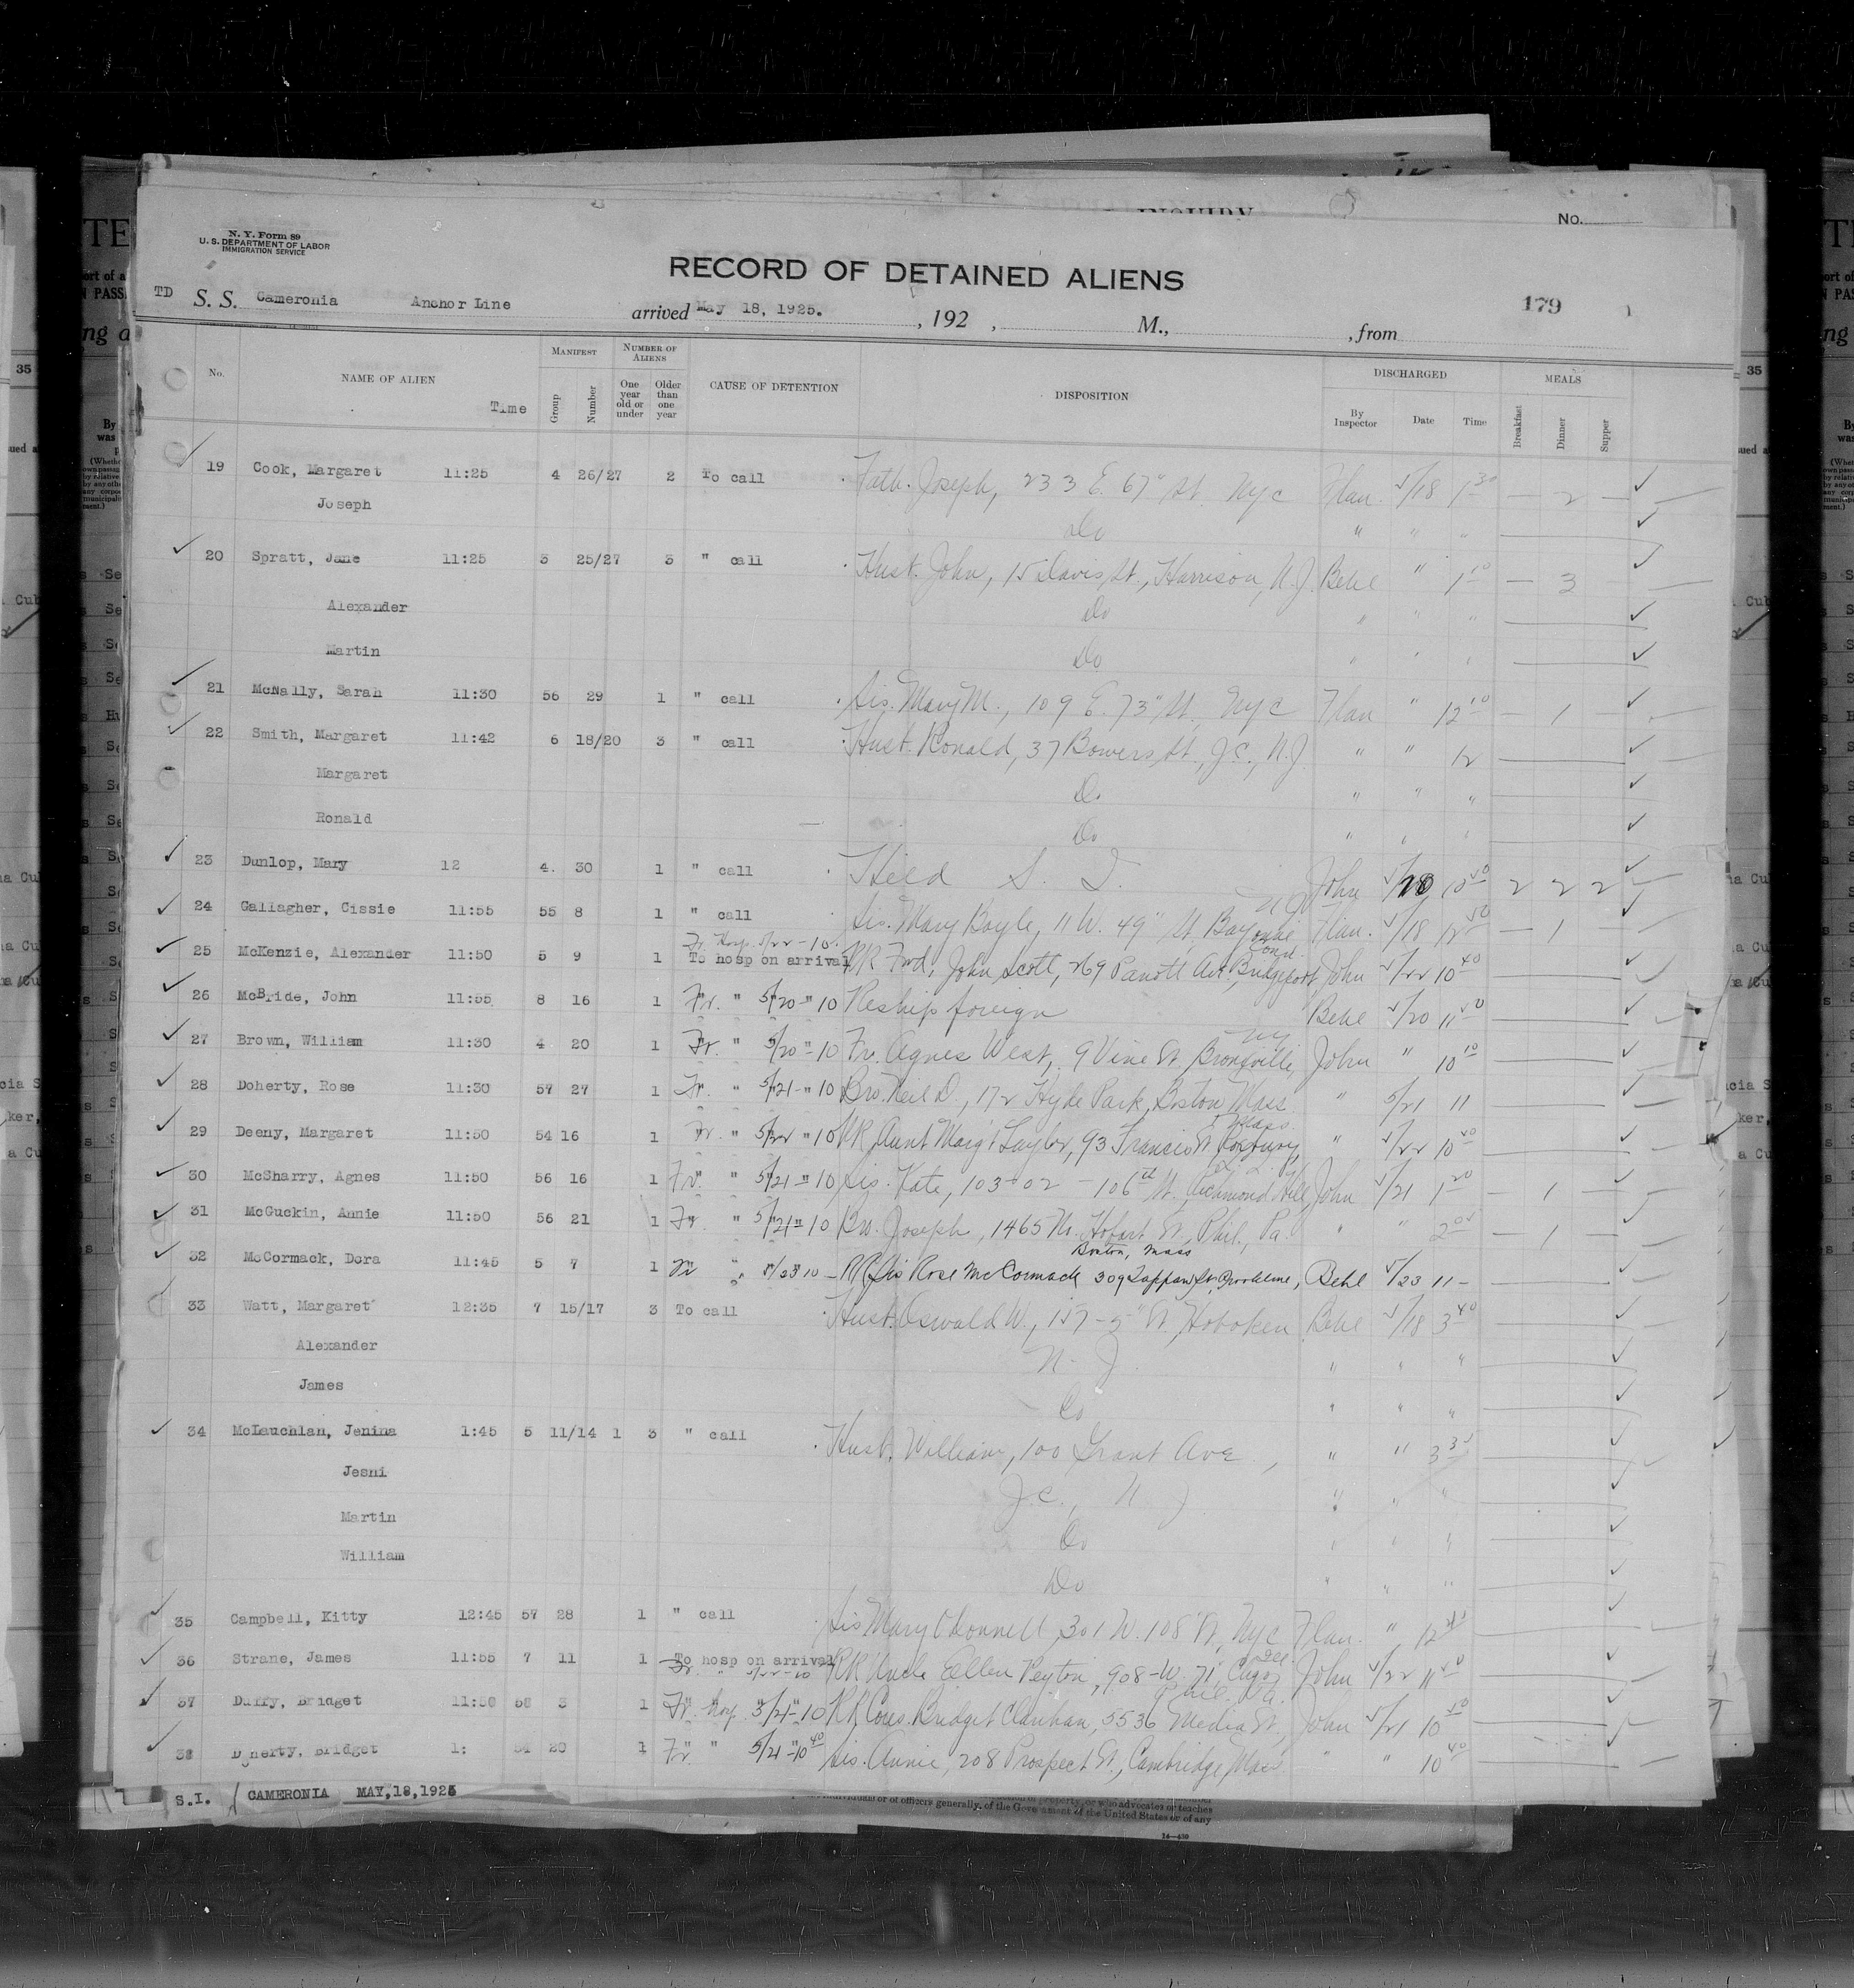 No.
N. Y. Form 89
U. S. DEPARTMENT OF LABOR
IMMIGRATION SERVICE
RECORD OF DETAINED ALIENS
TD S. S. Cameronia Anchor Line arrived May 18, 1925. , 192 , M., , from 179
No. NAME OF ALIEN Time MANIFEST Group Number NUMBER OF ALIENS One year old or under Older than one year CAUSE OF DETENTION DISPOSITION DISCHARGED By Inspector Date Time MEALS Breakfast Dinner Supper
19 Cook, Margaret 11:25 4 26/27 2 To call Fath. Joseph, 233 E. 67" St. NYC Flan. 5/18 1 30 — 2 —
Joseph Do " " "
20 Spratt, Jane 11:25 3 25/27 3 " call Husb. John, 15 Davis St., Harrison, N.J. Behl " 1 10 — 3
Alexander Do " " "
Martin Do " " "
21 McNally, Sarah 11:30 56 29 1 " call Sis. Mary M., 109 E. 73" St. NYC Flan " 12 10 — 1
22 Smith, Margaret 11:42 6 18/20 3 " call Husb. Ronald, 37 Bowers St., J.C., N.J. " " 12
Margaret Do " " "
Ronald Do " " "
23 Dunlop, Mary 12 4. 30 1 " call Held S. I. John 5/20 10 50 2 2 2
24 Gallagher, Cissie 11:55 55 8 1 " call Sis. Mary Boyle, 11 W. 49" St. Bayonne NJ Flan. 5/18 12 50 — 1 —
25 McKenzie, Alexander 11:50 5 9 1 To hosp on arrival Fr. Hosp. 5/22-10. RR Frd. John Scott, 269 Parrott Ave Bridgeport Conn. John 5/22 10 40
26 McBride, John 11:55 8 16 1 Fr. " 5/20 " 10 Reship foreign Behl 5/20 11 50
27 Brown, William 11:30 4 20 1 Fr. " 5/20 " 10 Fr. Agnes West, 9 Vine St. Bronxville, NY John " 10 10
28 Doherty, Rose 11:30 57 27 1 Fr. " 5/21 " 10 Bro. Neil D., 172 Hyde Park, Boston Mass " 5/21 11
29 Deeny, Margaret 11:50 54 16 1 Fr. " 5/22 " 10 RR Aunt Marg't Taylor, 93 Francis St. Roxbury, Mass. " 5/22 10 50
30 McSharry, Agnes 11:50 56 16 1 Fr. " 5/21 " 10 Sis. Kate, 103-02 - 106th St., Richmond Hill, John 5/21 1 20 — 1 —
31 McGuckin, Annie 11:50 56 21 1 Fr. " 5/21 " 10 Bro. Joseph, 1465 N. Hobart St., Phil., Pa. " " 2 00 — 1
32 McCormack, Dora 11:45 5 7 1 Fr " 5/23 10 - RR Sis Rose McCormack 309 Tappan St, Brookline, Boston, Mass Behl 5/23 11 -
33 Watt, Margaret 12:35 7 15/17 3 To call Husb. Oswald W., 157-5" St, Hoboken Behl 5/18 3 40
Alexander N. J. " " "
James Do " " "
34 McLauchlan, Jenina 1:45 5 11/14 1 3 " call Husb. William, 100 Grant Ave., " " 3 30
Jesni J.C., N J " " "
Martin Do " " "
William Do " " "
35 Campbell, Kitty 12:45 57 28 1 " call Sis Mary O'Donnell, 301 W. 108 St, NYC Flan. " 12
36 Strane, James 11:55 7 11 1 To hosp on arrival Fr. " 5/22-10 RR Uncle Ellen Peyton, 908-W. 71, Chgo, Ill. John 5/22 11 50
37 Duffy, Bridget 11:50 58 3 1 Fr. hosp 5/21-10 RR Cous. Bridget Clanihan, 5536 Media St., Phil. Pa. John 5/21 10 50
38 Doherty, Bridget 1: 54 20 1 Fr. " 5/21 " 10 40 Sis. Annie, 208 Prospect St., Cambridge, Mass " " 10 40
S.I. CAMERONIA MAY,18,1925
of officers generally, of the Government of the United States or of any